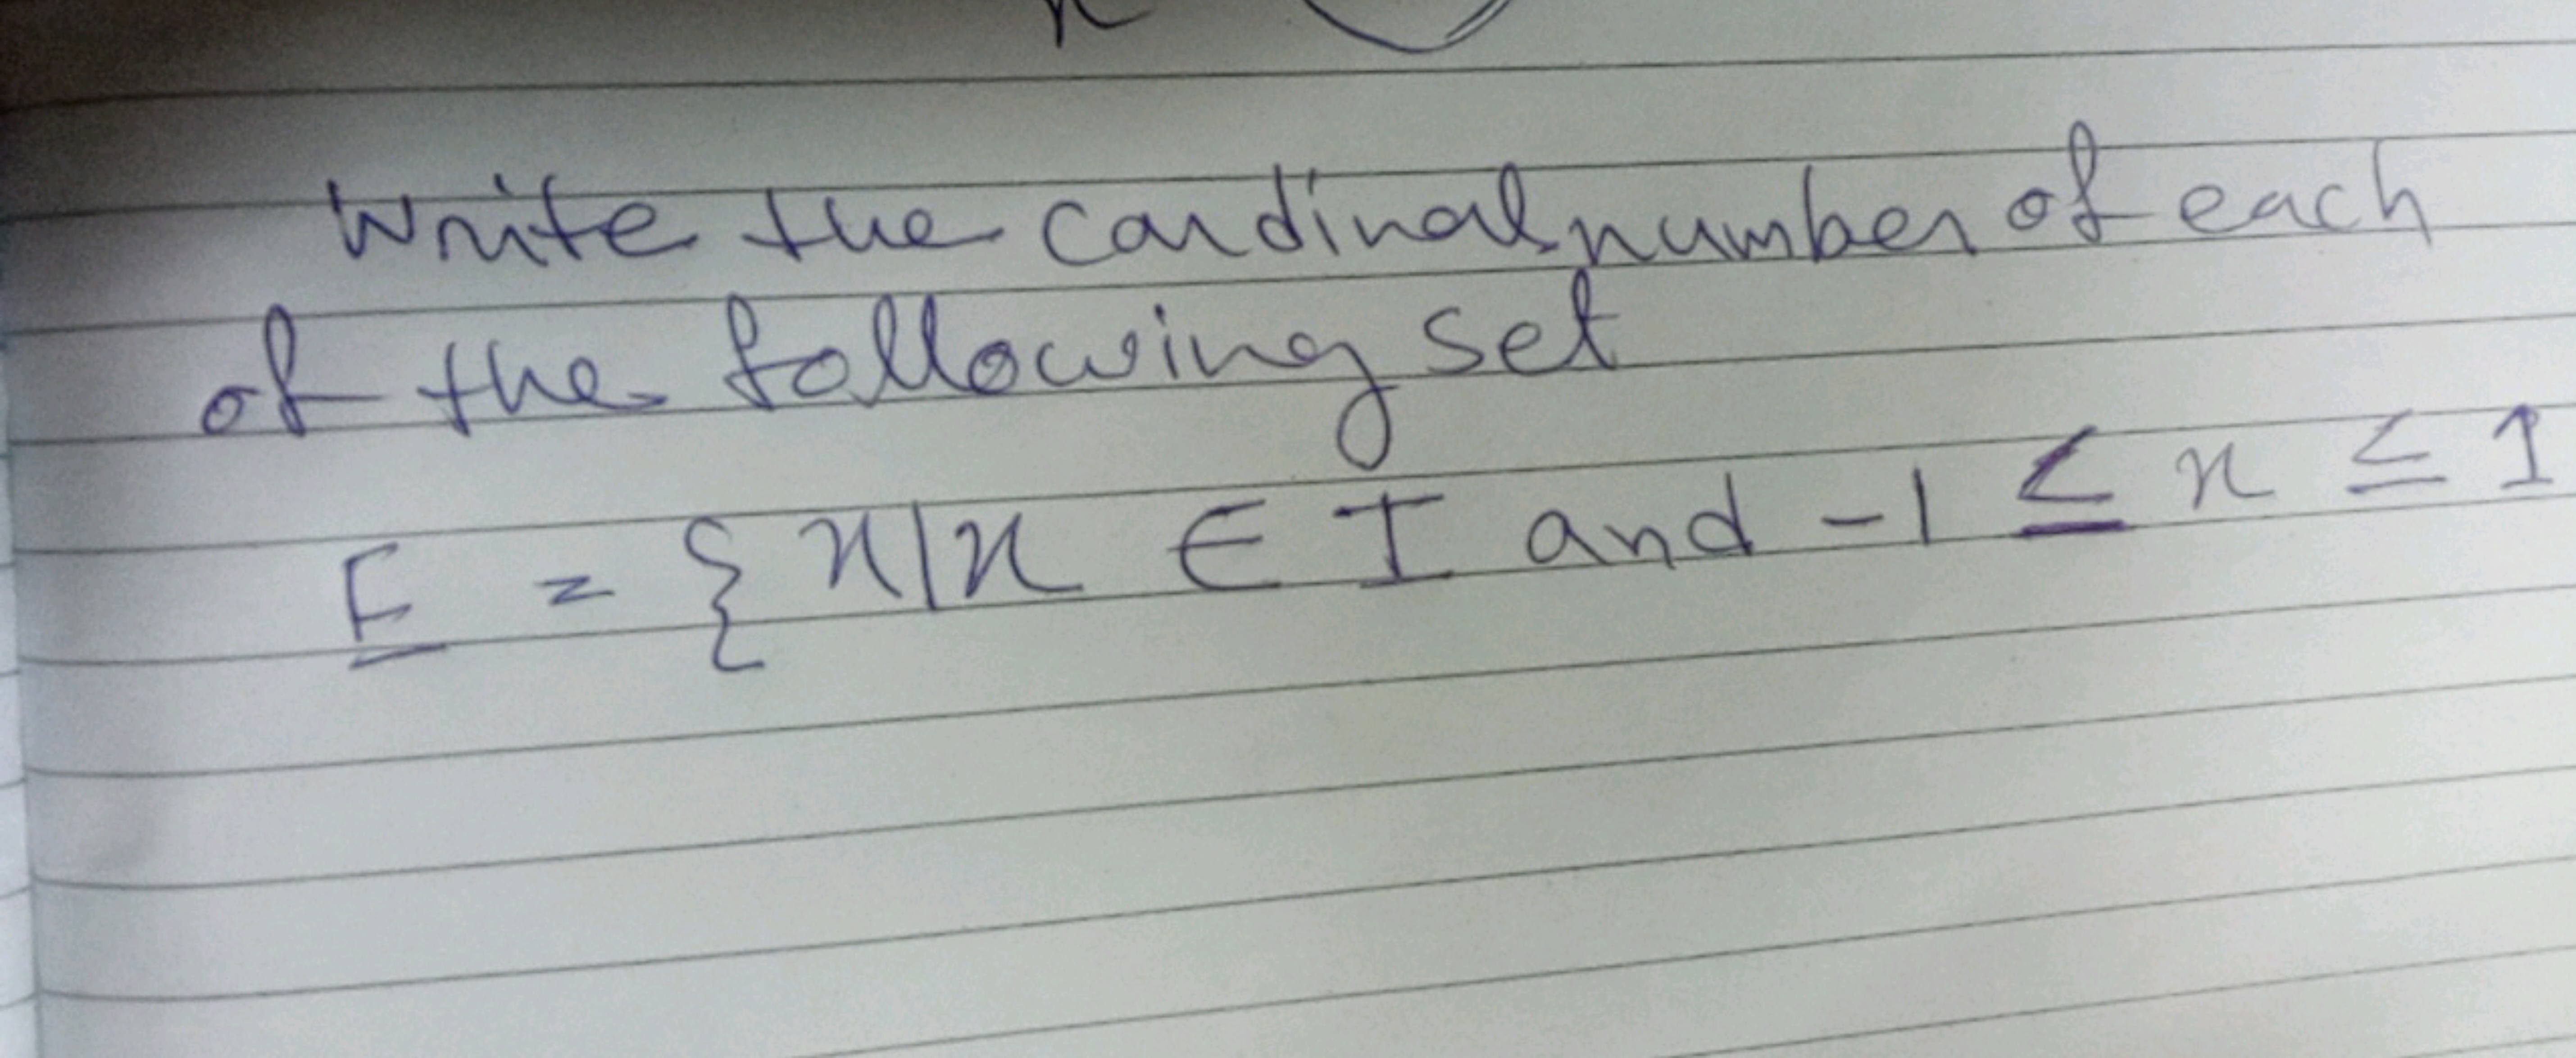 Write the cardinal number of each
of the following set
E = { x | x ∈ I and -1 ≤ x ≤ 1